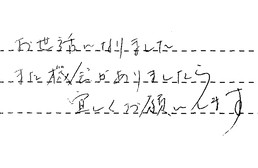 お世話になりました
また機会がありましたら
宜しくお願いします